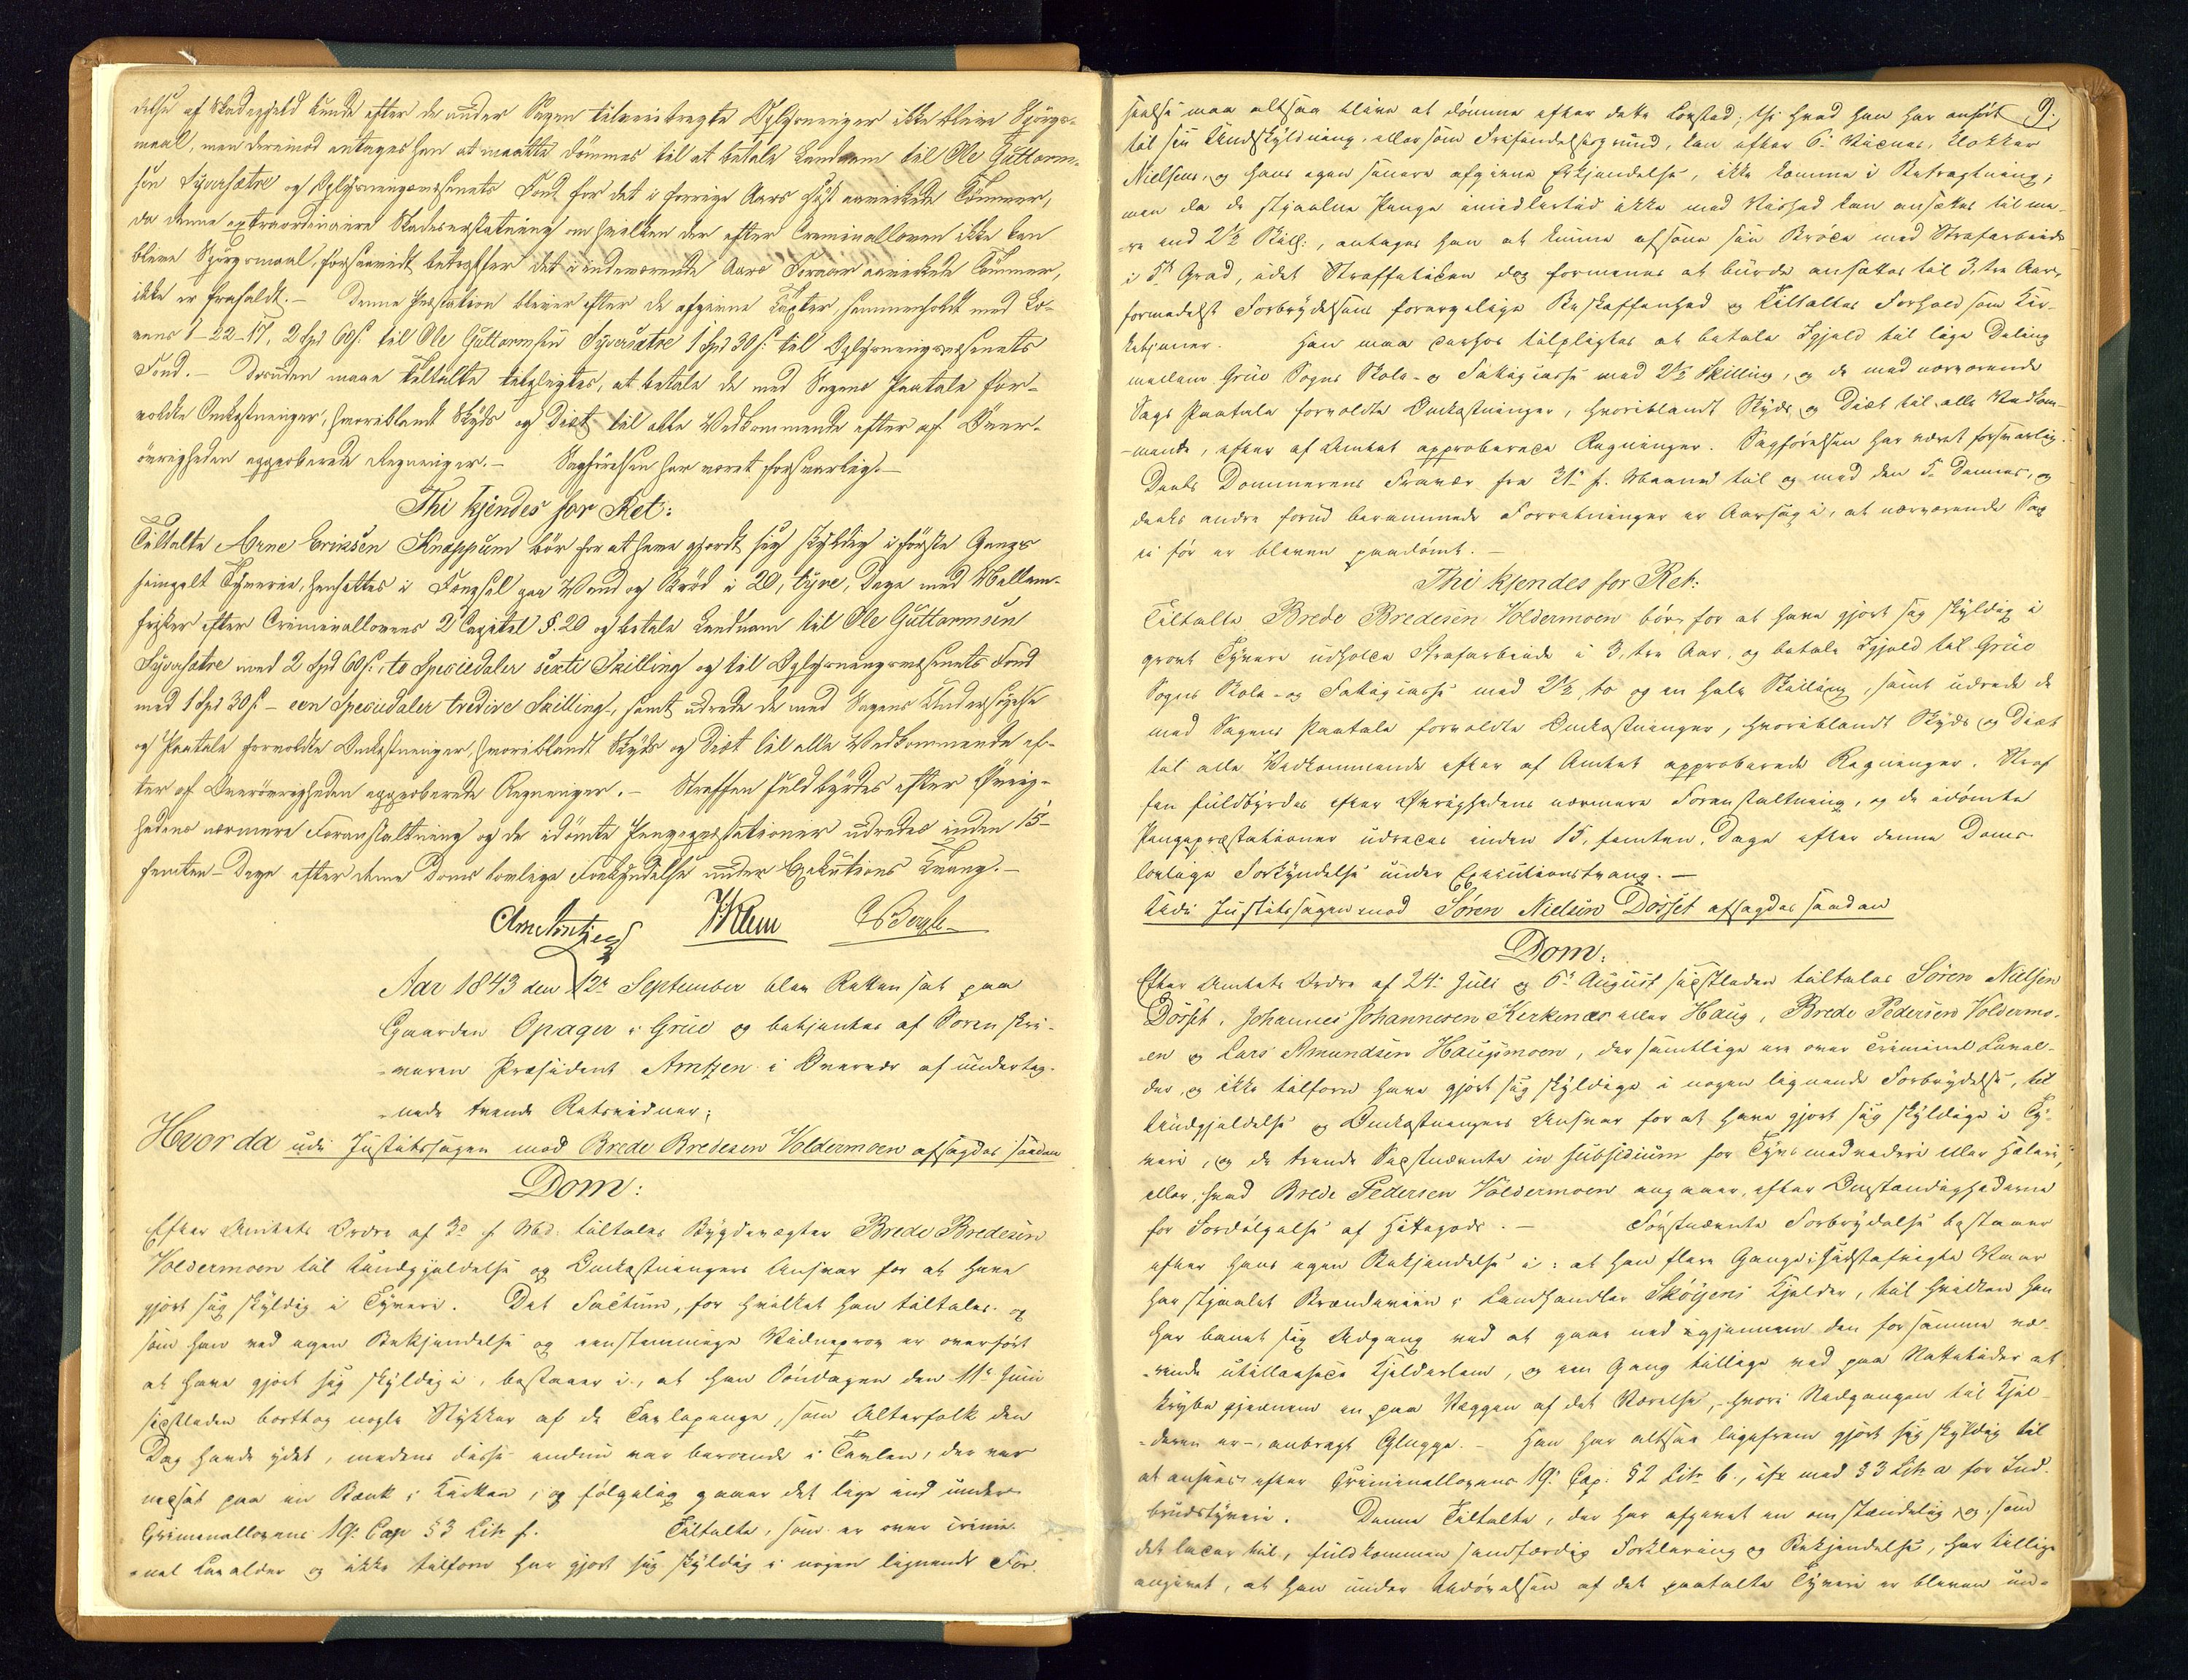 delse af Skadegjeld kunde efter de under Sagen tilveiebragte Oplysninger ikke blive Spørgs-
maal, men derimod antages han at maatte dømmes til at betale Landnam til Ole Guttorm-
sen Syversætre og Oplysningsvæsenets Fond for det i forrige Aars Høst anviste Tømmer,
da denne extraordinaire Skadeserstatning om hvilken der efter Criminalloven ikke kan
blive Spørgsmaal, forsaavidt betræffer det i indeværende Aars Foraar Tømmer,
ikke er frafaldt.- Denne Præstation bliver efter de afgivne Taxter, sammenholdt med Lo-
vens 1-22-17, 2 Spd 60 s. til Ole Guttormsen Syversætre 1 Spd 30 s. til Oplysningsvæsenets
Fond.- Desuden maae Tiltalte tilpligtes, at betale de med Sagens Paatale for-
voldte Omkostninger, hvoriblandt Skyds og Diæt til alle Vedkommende efter af Over-
øvrigheden approberede Regninger.- Sagførelsen har været forsvarlig.-
Thi kjendes for Ret:
Tiltalte Arne Eriksen Knappum bør for at have gjordt sig skyldig i første Gangs
simpelt Tyverie, hensættes i Fængsel paa Vand og Brød i 20, tyve, Dage med Mellem-
frister efter Criminallovens 2 Capitel §. 20 og betale Landnam til Ole Guttormsen
Syversætre med 2 Spd 60 s. to Speciedaler sexti Skilling og til Oplysningsvæsenets Fond
med 1 Spd 30 s - een Speciedaler tredive Skilling-, samt udrede de med Sagens Undersøgelse
og Paatale forvoldte Omkostninger, hvoriblandt Skyds og Diæt til alle Vedkommende ef-
ter af Overøvrigheden approberede Regninger.- Straffen fuldbyrdes efter Øvrig-
hedens nærmere Foranstaltning og de idømte Pengepræstationer udredes inden 15-
femten-Dage efter denne Doms lovlige Forkyndelse under Executions Tvang.-
Arntzen
Aar 1843 den 12te September blev Retten sat paa
Gaarden Opager i Grue og betjentes af Sorenskri-
veren Præsident Arntzen i Overvær af underteg-
nede tvende Retsvidner;
Hvor da udi Justitssagen mod Brede Bredesen Voldermoen afsagdes saadan
Dom:
Efter Amtets Ordre af 3de f. Md. tiltales Bygdevægter Brede Bredesen
Voldermoen til Undgjældelse og Omkostningers Ansvar for at have
gjort sig skyldig i Tyveri. Det Factum, for hvilket han tiltales og
som han ved egen Bekjendelse og eenstemmige Vidneprov er overført
at have gjort sig skyldig i, bestaaer i, at han Søndagen den 11te Juni
sidstleden borttog nogle Stykker af de Tavlepenge, som Alterfolk den
Dag havde ydet, medens disse endnu var beroende i Tavlen, der var
nedsat paa en Bænk i Kirken, og følgelig gaaer det lige ind under
Criminallovens 19. Cap §3 Litr f. Tiltalte, som er over crimi-
nel Lavalder og ikke tilforn har gjort sig skyldig i nogen lignende For-
9.
seelse maa altsaa blive at dømme efter dette Lovsted; thi hvad han har anført
til sin Undskyldning, eller som Frifindelsesgrund, kan efter 6. Vidnes, Klokker
Nielsens, og hans egen senere afgivne Erkjendelse, ikke komme i Betragtning;
men da de stjaalne Penge imidlertid ikke med Vished kan ansættes til me-
re end 2½ Skill:, antages han at kunne afsone sin Brøde med Strafarbeide
i 5te Grad, idet Straffetiden dog formenes at burde ansættes til 3, tre Aar,
formedelst Forbrydelsens forargelige Beskaffenhed og Tiltaltes Forhold som Kir-
ketjener. Han maa derhos tilpligtes at betale Igjeld til lige Deling
mellem Grue Sogns Skole- og Fattigcasse med 2½ Skilling, og de med nærværende
Sags Paatale forvoldte Omkostninger, hvoriblandt Skyds og Diæt til alle Vedkom-
mende, efter af Amtet approberede Regninger. Sagførelsen har været forsvarlig.
Deels Dommerens Fravær fra 31te f. Maaned til og med den 5. Dennes, og
deels andre forud berammede Forretninger er Aarsag i, at nærværende Sag
ei før er bleven paadømt.-
Thi kjendes for Ret:
Tiltalte Brede Bredesen Voldermoen bør for at have gjort sig skyldig i
grovt Tyveri udholde Strafarbeide i 3, tre Aar, og betale Igjeld til Grue
Sogns Skole- og Fattigcasse med 2½ to og en halv Skilling, samt udrede de
med Sagens Paatale forvoldte Omkostninger, hvoriblandt Skyds og Diæt
til alle Vedkommende efter af Amtet approberede Regninger. Straf-
fen fuldbyrdes efter Øvrighedens nærmere Foranstaltning, og de idømte
Pengepræstationer udredes inden 15, femten, Dage efter denne Doms
lovlige Forkyndelse under Executionstvang.-
Udi Justitssagen mod Søren Nielsen Dosset afsagdes saadan
Dom:
Efter Amtets Ordre af 24. Juli og 6te August sidstleden tiltales Søren Nielsen
Dosset, Johannes Johannesen Kirkenær eller Haug, Brede Pedersen Voldermo-
en og Lars Amundsen Haugsmoen, der samtlige ere over criminel Laval-
der, og ikke tilforn have gjort sig skyldige i nogen lignende Forbrydelse, til
Undgjældelse og Omkostningers Ansvar for at have gjort sig skyldige i Ty-
veri, og de tvende Sidstnævnte in subsidium for Tyvsmedvideri eller Hæleri,
eller, hvad Brede Pedersen Voldermoen angaaer, efter Omstændighederne
for Fordølgelse af Hittegods.- Førstnævnte Forbrydelse bestaaer
efter hans egen Bekjendelse i: at han flere Gange i sidstafvigte Vaar
har stjaalet Brændeviin i Landhandler Skøyens Kjelder, til hvilken han
har banet sig Adgang ved at gaae ned igjennem den for samme væ-
rende utillaasede Kjelderlem, og een Gang tillige ved paa Nattetider at
krybe gjennem en paa Væggen af det Værelse,- hvori Nedgangen til Kjel-
deren er-, anbragt Glugge.- Han har altsaa ligefrem gjort sig skyldig til
at ansees efter Criminallovens 19. Cap. §2 Litr. b., cfr. med §3 Litr a for Ind-
brudstyveri. Denne Tiltalte, der har afgivet en omstændelig og, som
det lader til, fuldkommen sandfærdig Forklaring og Bekjendelse, har tillige
angivet, at han under Udøvelsen af det paatalte Tyveri er bleven un-